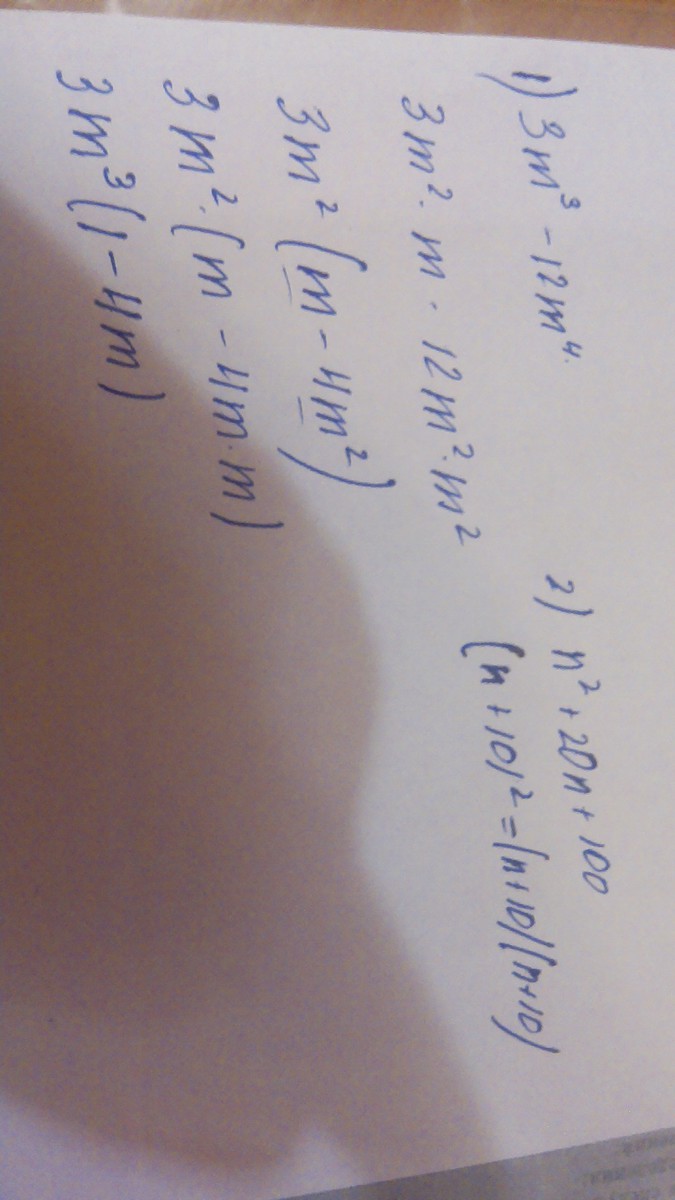 1) 3m³ - 12m⁴.
3m² · m · 12m² · m²
3m² (m - 4m²)
3m² · (m - 4m · m)
3m³ (1 - 4m)
2) n² + 20n + 100
(n + 10)² = (n+10)(n+10)